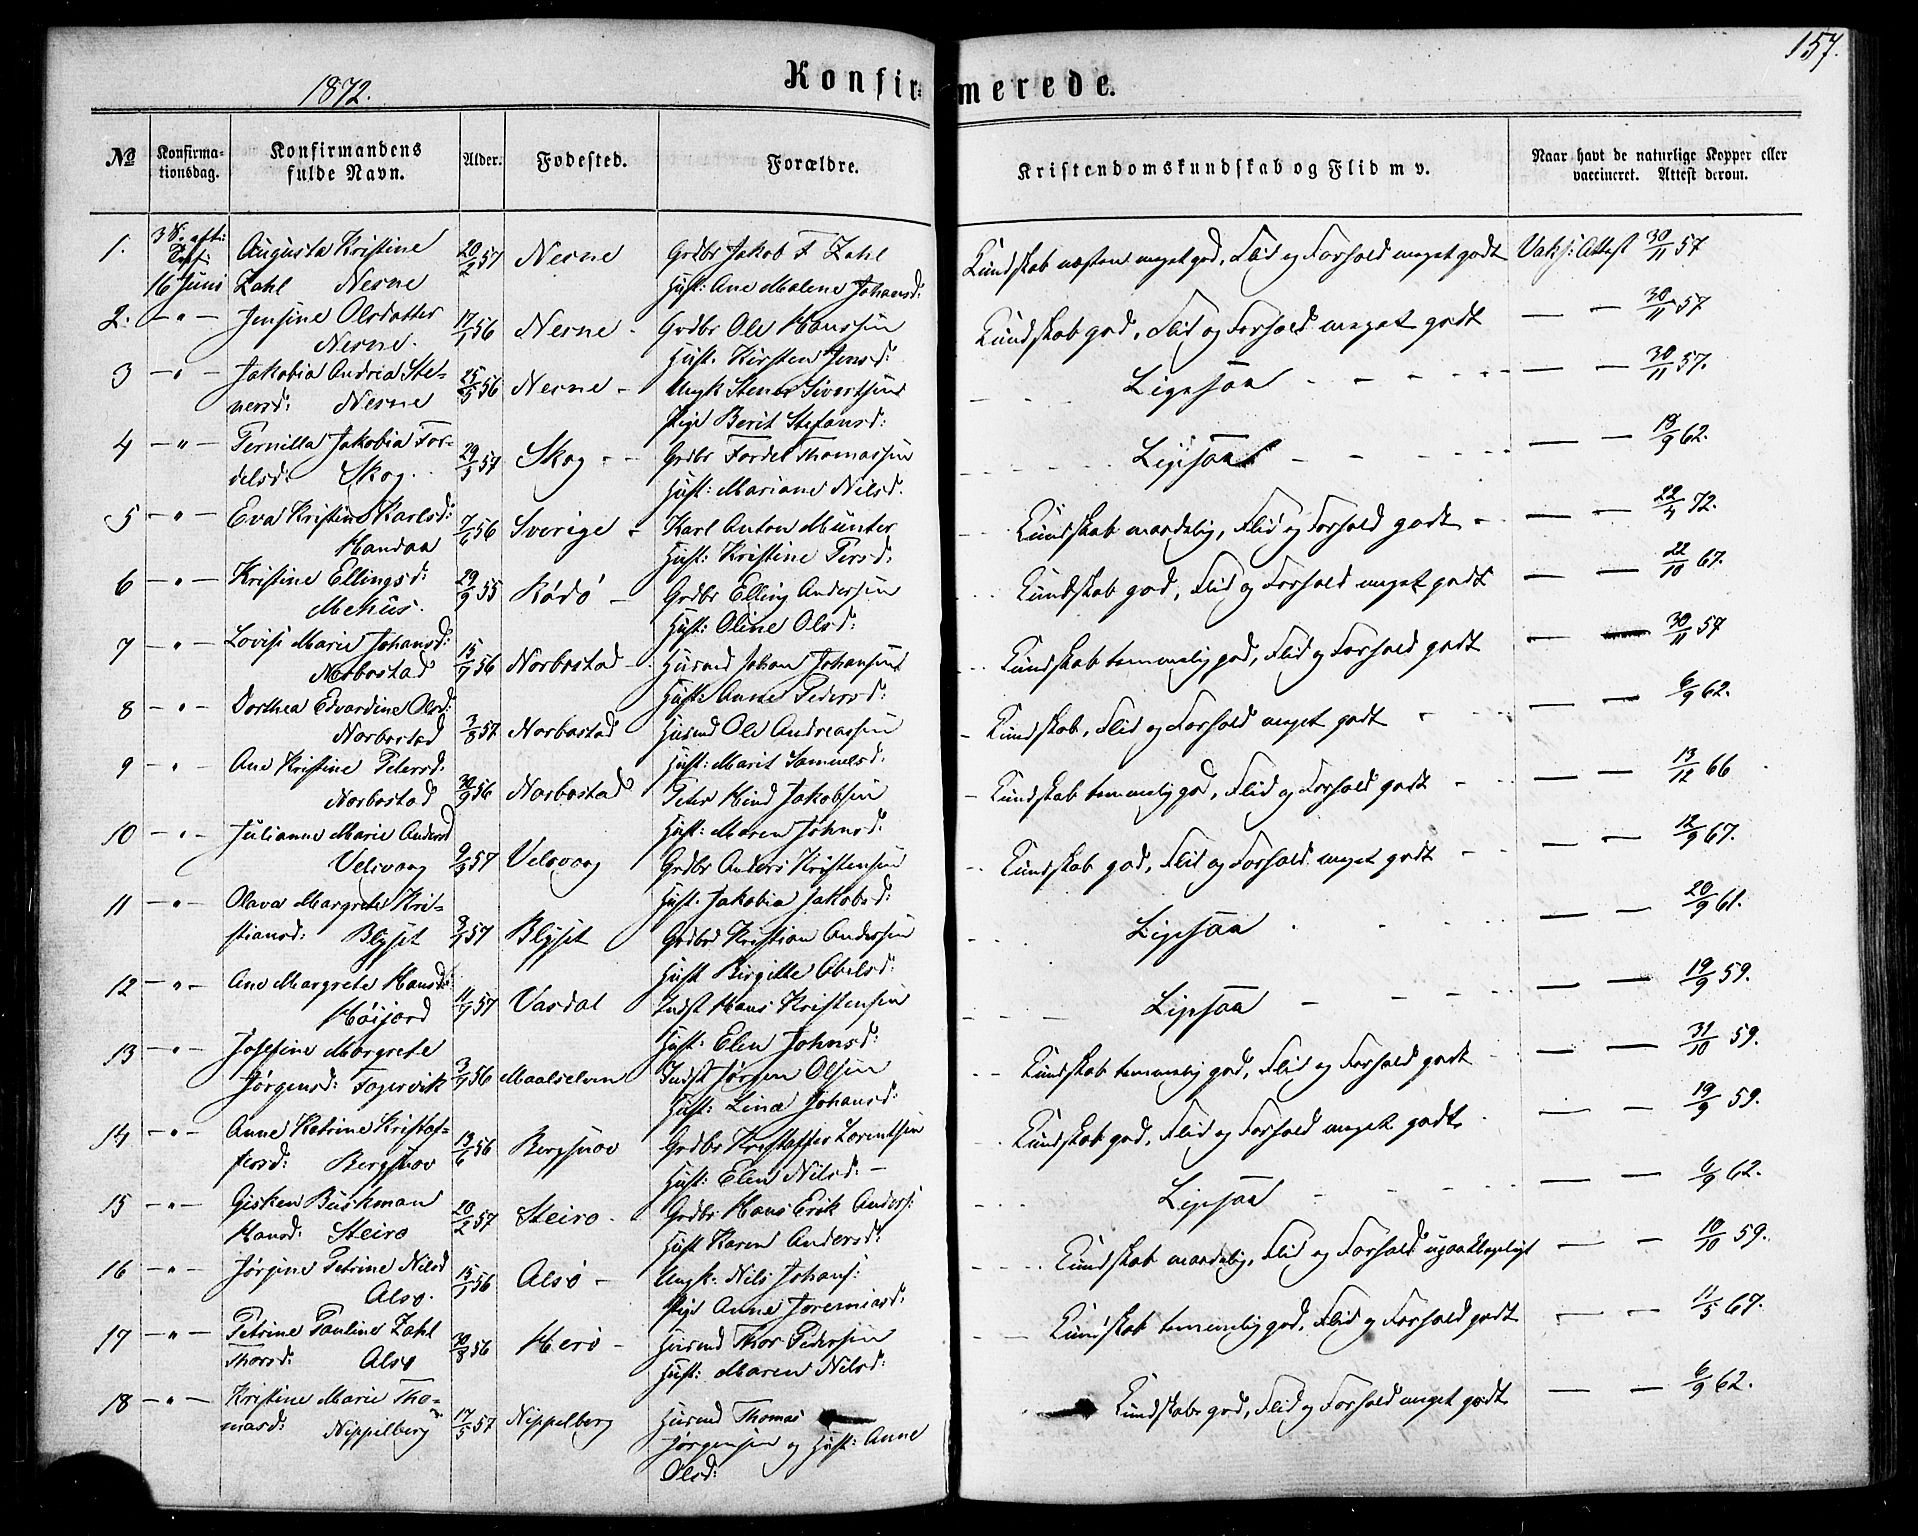 157.
1872.
Konfirmerede.
No
Konfirmationsdag.
Konfirmandens fulde Navn.
Alder.
Fødested.
Forældre.
Kristendomskundskab og Flid m v.
Naar havt de naturlige Kopper eller vaccineret. Attest derom.
1. 3 S. aft: Augusta Kristine 20/2 57 Nesne Grdbr Jakob F Zahl Kundskab næsten meget god, Flid og Forhold meget godt Vaks: Attest 30/11 57
16 Juni Zahl Nesne Hust: Ane Malene Johansd:
2. – " – Jensine Olsdatter 17/1 56 Nesne – Grdbr Ole Hanssen Kundskab god, Flid og Forhold meget godt — — 30/11 57
Nesne. Hust: Kirsten Jensd:
3 – " – Jakobia Andria Ste- 25/5 56 Nesne – Ungk Stener Sivertsen Ligesaa — — 30/11 57.
nersd: Nesne Pige Berit Stefansd:
4 – " – Pernilla Jakobia For- 29/5 57 Skog – Grdbr Fordel Thomassen Ligesaa — — 18/9 62.
delsd: Skog. Hust: Mariane Nilsd.
5 – " – Eva Kristine Karlsd: 7/6 56 Sverige – Karl Anton Münter Kundskab maadelig, Flid og Forhold godt — — 22/4 72.
Handaa Hust: Kristine Persd:
6 – " – Kristine Ellingsd: 29/9 55 Rödö – Grdbr Elling Andersen Kundskab god, Flid og Forhold meget godt — — 22/10 67.
Mehus. Hust: Oline Olsd:
7 – " – Lovise Marie Johansd: 15/9 56 Norbostad – Husmd Johan Johansen Kundskab temmelig god, Flid og Forhold godt — — 30/11 57
Norbostad Hust: Anne Pedersd:
8 – " – Dorthea Edvardine Olsd: 7/8 57 Norbostad Husmd Ole Andreassen Kundskab, Flid og Forhold meget godt — — 6/9 62.
Norbostad Hust: Marit Samuelsd:
9 – " – Ane Kristine Petersd: 30/9 56 Norbostad Peter Hind Jakobsen Kundskab temmelig god, Flid og Forhold godt — — 13/12 66
Norbostad Hust: Maren Johnsd:
10 – " – Julianne Marie Andersd 9/3 57 Velsvaag Grdbr Anders Kristensen Kundskab god, Flid og Forhold meget godt — — 12/9 67.
Velsvaag Hust: Jakobia Jakobsd:
11 – " – Olava Margrete Kri- 8/1 57 Blyset Grdbr Kristian Andersen Ligesaa — — 20/9 61.
stiansd: Blyset Hust Birgitte Abelsd:
12 – " – Ane Margrete Hansd: 11/7 57 Vasdal Indst Hans Kristensen Ligesaa — — 19/9 59.
Höijord Hust: Elen Johnsd:
13 – " – Josefine Margrete 3/9 56 Maalselven Indst Jörgen Olsen Kundskab temmelig god, Flid og Forhold godt — — 31/10 59.
Jörgensd: Fagervik Hust: Lina Johansd:
14 – " – Anne Katrine Kristof- 19/6 56 Bergsnov Grdbr Kristoffer Lorentsen Kundskab god, Flid og Forhold meget godt — — 19/9 59.
fersd: Bergsnov Hust: Elen Nilsd: –
15 – " – Gisken Buskman 20/2 57 Steiro – Grdbr Hans Erik Anders: Ligesaa — — 6/9 62.
Hansd: Steiro Hust Karen Andersd:
16 – " – Jörgine Petrine Nilsd 15/1 56 Alsö – Ungk: Nils Johans: Kundskab maadelig, Flid og Forhold upaaklageligt — — 10/10 59.
Alsö. Pige Anne Joremiasd:
17 – " – Petrine Pauline Zahl 30/8 56 Herö – Husmd Thor Pedersen Kundskab temmelig god, Flid og Forhold godt — — 11/5 67.
Thorsd: Alsö Hust: Maren Nilsd:
18 – " – Kristine Marie Tho- 17/5 57 Nippelberg Husmd Thomas Kundskab god, Flid og Forhold meget godt — — 6/9 62.
masd: Nippelberg Jörgensen og Hust: Anne
Olsd: